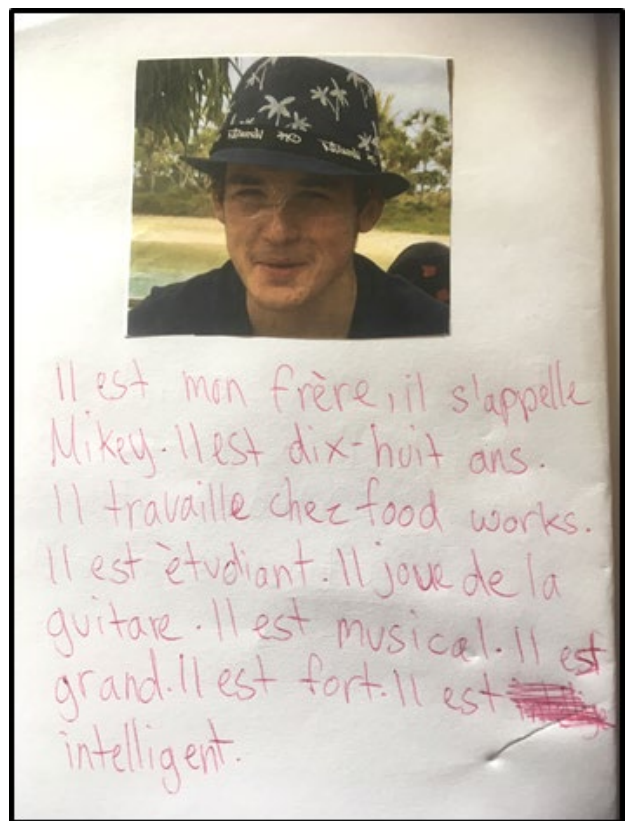 Il est mon frère, il s'appelle
Mikey. Il est dix-huit ans.
Il travaille chez food works.
Il est ètudiant. Il joue de la
guitare. Il est musical. Il est
grand. Il est fort. Il est
intelligent.